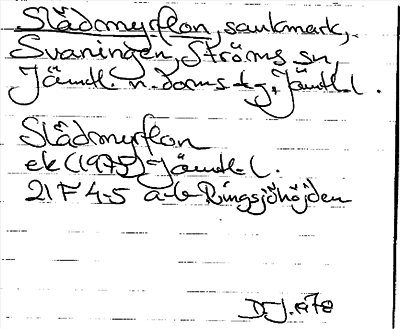 Slådmyrflon, sankmark,
Svaningen, Ströms sn,
Jämtl. n. doms tg, Jämtl. l.
Slådmyrflon
ek (1975) Jämtl. l.
21 F 4-5 a-b Ringsjöhöjden